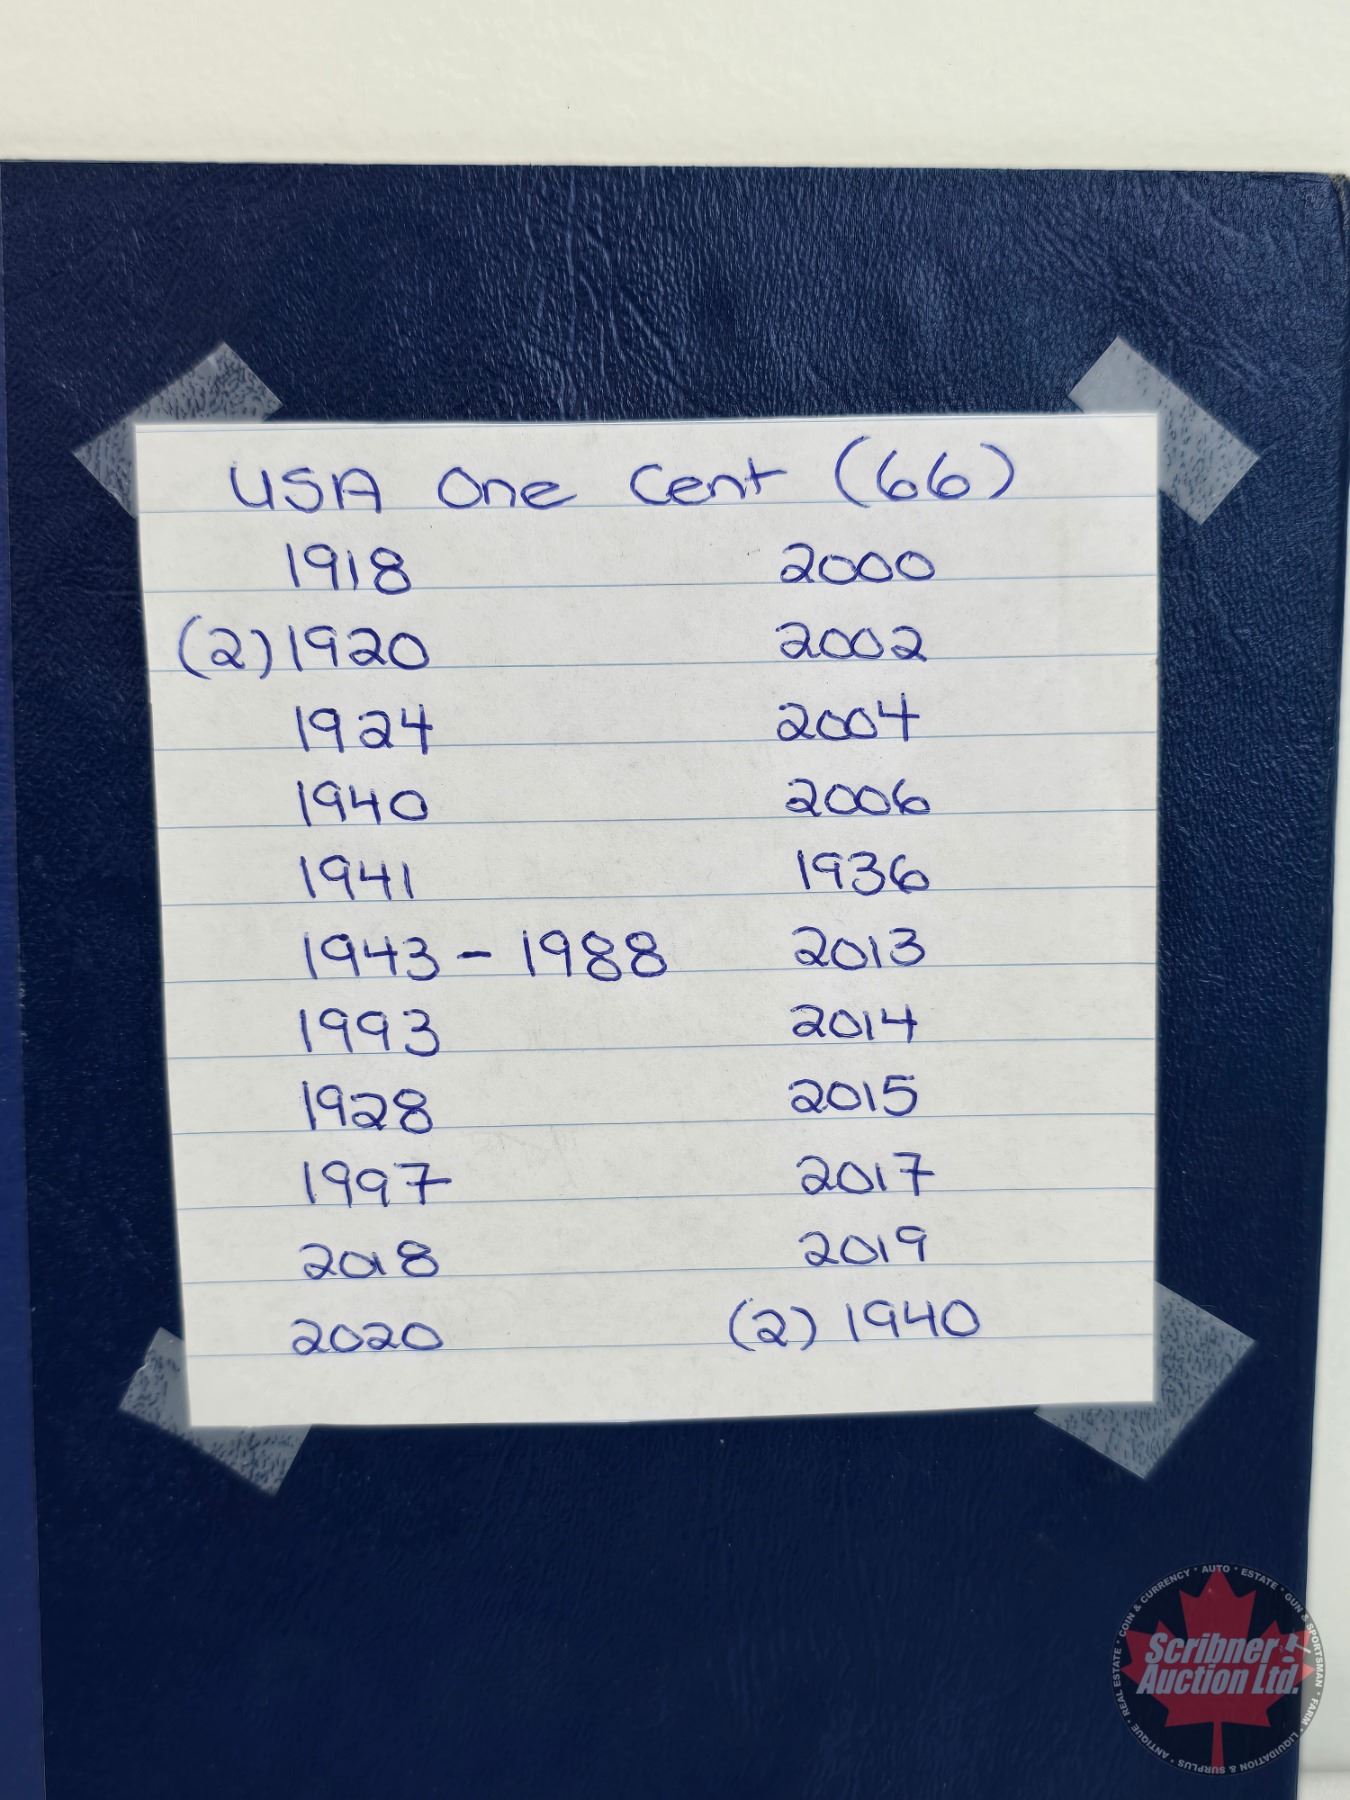 USA One Cent (66)
1918
(2) 1920
1924
1940
1941
1943 - 1988
1993
1928
1997
2018
2020
2000
2002
2004
2006
1936
2013
2014
2015
2017
2019
(2) 1940
Scribner
Auction Ltd.
ANTIQUE • REAL ESTATE • COIN & CURRENCY • AUTO • ESTATE • GUN & SPORTSMAN • FARM • LIQUIDATION & SURPLUS •